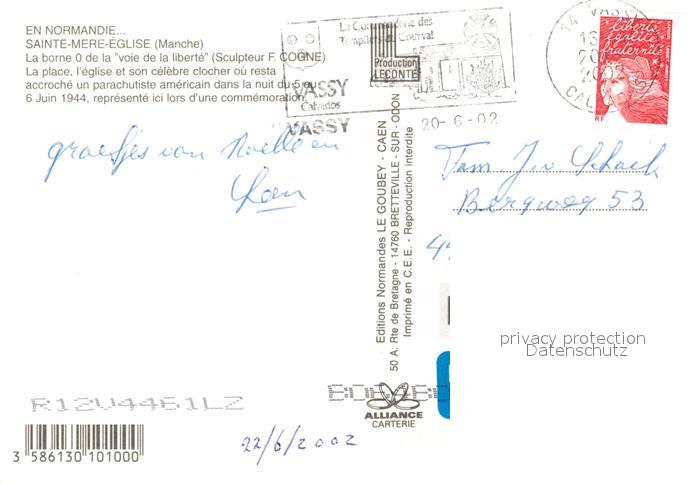 EN NORMANDIE...
SAINTE-MERE-ÉGLISE (Manche)
La borne 0 de la "voie de la liberté" (Sculpteur F. COGNE)
La place, l'église et son célèbre clocher où resta
accroché un parachutiste américain dans la nuit du 5 au
6 Juin 1944, représenté ici lors d'une commémoration.
La Commanderie des
Templiers de Courval
Production
LECONTE
VASSY
Calvados
VASSY
20-6-02
14 VASSY
liberté
égalité
fraternité
RF
groetjes van Noëlle en
Fam. J. v. Schaik
Bergweg 53
Editions Normandes LE GOUBEY - CAEN
50 A. Rte de Bretagne - 14760 BRETTEVILLE - SUR - ODON
Imprimé en C.E.E. - Reproduction interdite
privacy protection
Datenschutz
R12V4461LZ
ALLIANCE
CARTERIE
3 586130 101000
22/6/2002